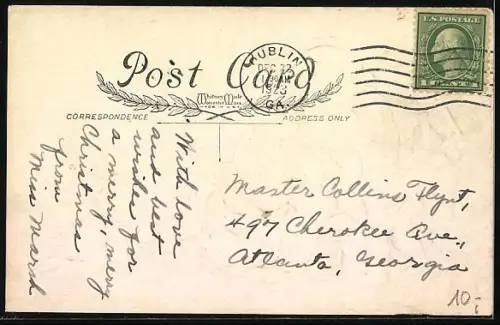 Post Card
DUBLIN
DEC 22
GA.
U.S. POSTAGE
Whitney Made
Worcester, Mass.
MADE IN U.S.A.
CORRESPONDENCE
ADDRESS ONLY
With love
and best
wishes for
a merry, merry
Christmas
from
Miss Marsh
Master Collins Flynt,
497 Cherokee Ave.,
Atlanta, Georgia
10,-